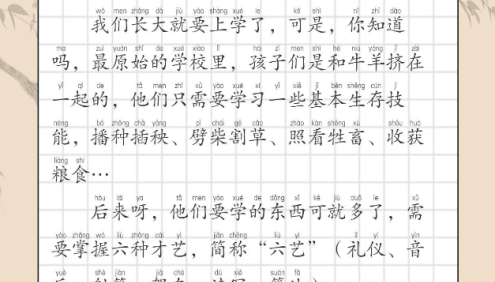 wǒ men zhǎng dà jiù yào shàng xué le kě shì nǐ zhī dào
我们长大就要上学了，可是，你知道
ma zuì yuán shǐ de xué xiào lǐ hái zi men shì hé niú yáng jǐ zài
吗，最原始的学校里，孩子们是和牛羊挤在
yī qǐ de tā men zhǐ xū yào xué xí yī xiē jī běn shēng cún jì
一起的，他们只需要学习一些基本生存技
néng bō zhǒng chā yāng pī chái gē cǎo zhào kàn shēng xù shōu huò
能，播种插秧、劈柴割草、照看牲畜、收获
liáng shi
粮食…
hòu lái ya tā men yào xué de dōng xī kě jiù duō le xū
后来呀，他们要学的东西可就多了，需
yào zhǎng wò liù zhǒng cái yì jiǎn chēng liù yì lǐ yí yīn
要掌握六种才艺，简称“六艺”（礼仪、音